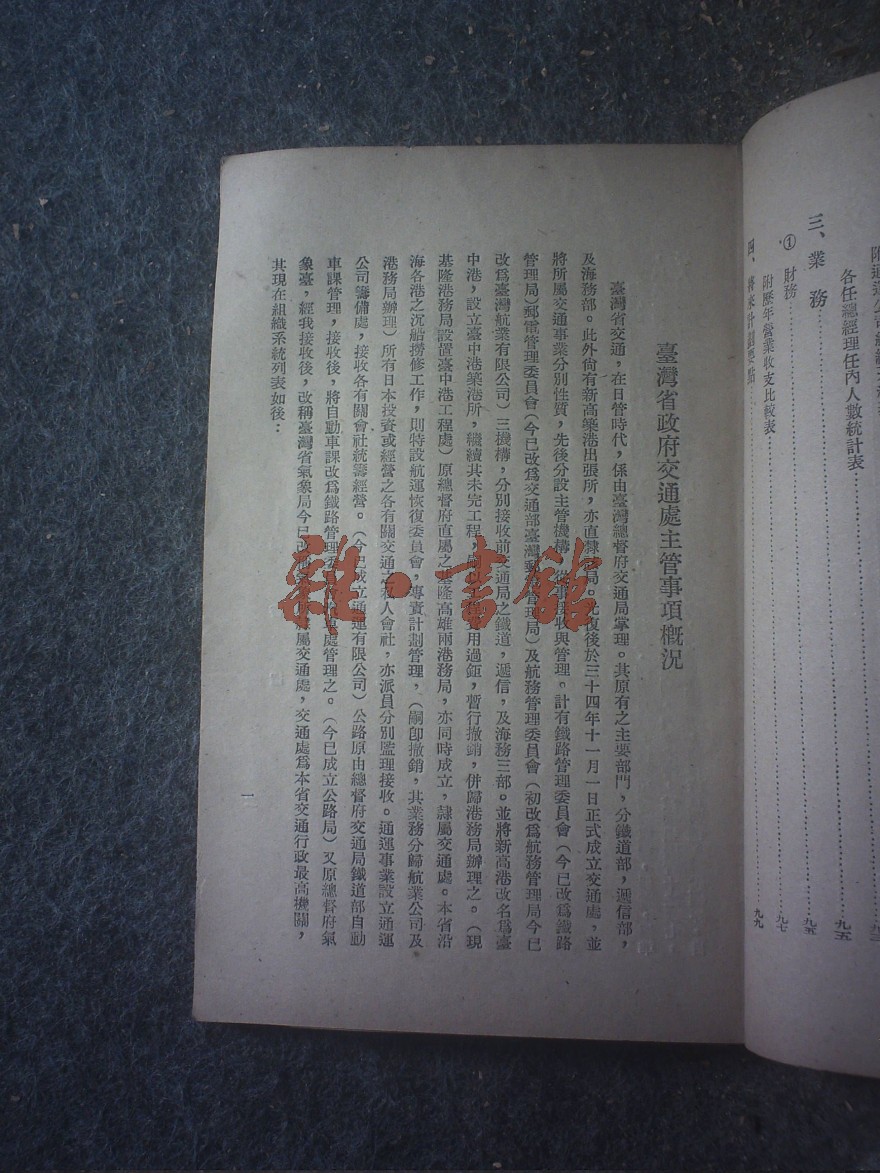 各任總經理任內人數統計表……九五
三、業務……九五
①財務……九七
附歷年營業收支比較表
四、將來計劃要點……九九
臺灣省政府交通處主管事項概況
臺灣省交通，在日管時代，係由臺灣總督府交通局掌理。其原有之主要部門，分鐵道部，遞信部，
及海務部。此外尙有新高築港出張所，亦直隸該局。光復後於三十四年十一月一日正式成立交通處，並
將所屬交通事業分別性質，先後分設主管機構，從事接收與管理。計有鐵路管理委員會（今已改爲鐵路
管理局）郵電管理委員會（今已改爲交通部臺灣郵電管理局）及航務管理委員會（初改爲航務管理局今已
改爲臺灣航業有限公司）三機構，分別接收前交通局之鐵道，遞信，及海務三部。並將新高港改名爲臺
中港，設立臺中港築港所，繼續其未完工程，嗣以工程費用過鉅，暫行撤銷，併歸港務局辦理之。（現
基隆港務局設置臺中港工程處）原總督府直屬之基隆高雄兩港務局，亦同時成立，隸屬交通處。本省沿
海各港之沉船撈修工作，則特設航運恢復委員會，專責計劃管理，（嗣卽撤銷，其業務分歸航業公司及
港務局辦理）所有日本投資或經營之各有關交通之私人會社，亦派員分別監理接收。通運事業設立通運
公司籌備處，接收各有關會社統籌經營。（今已成立通運有限公司）公路原由總督府交通局鐵道部自動
車課管理，接收後，將自動車課改爲鐵路管理委員會汽車處管理之。（今已成立公路局）又原總督府氣
象臺，經我接收後，改稱臺灣省氣象局今已改稱氣象所隸屬交通處，交通處爲本省交通行政最高機關，
其現在組織系統列表如後：
一
雜·書館